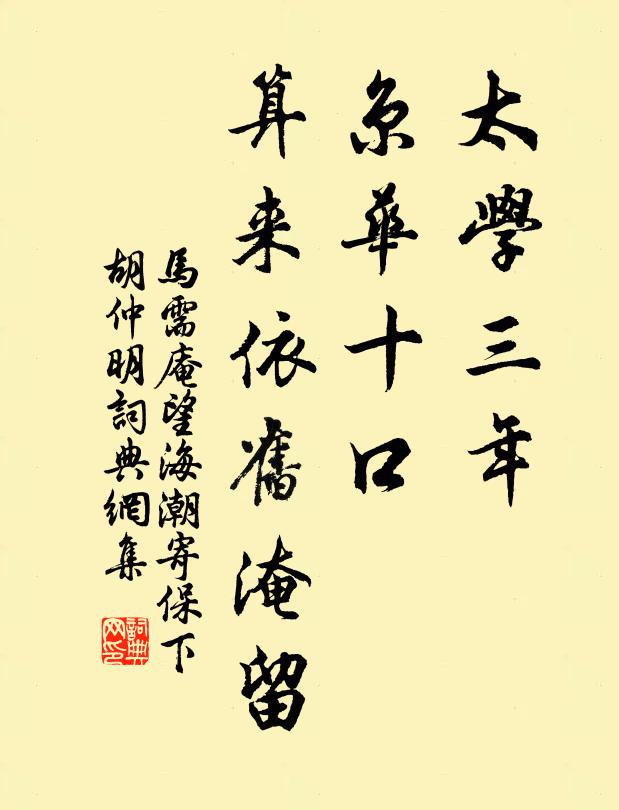 太學三年
京華十口
算来依舊淹留
馬需庵望海潮寄保下
胡仲明詞典網集
詞典网印